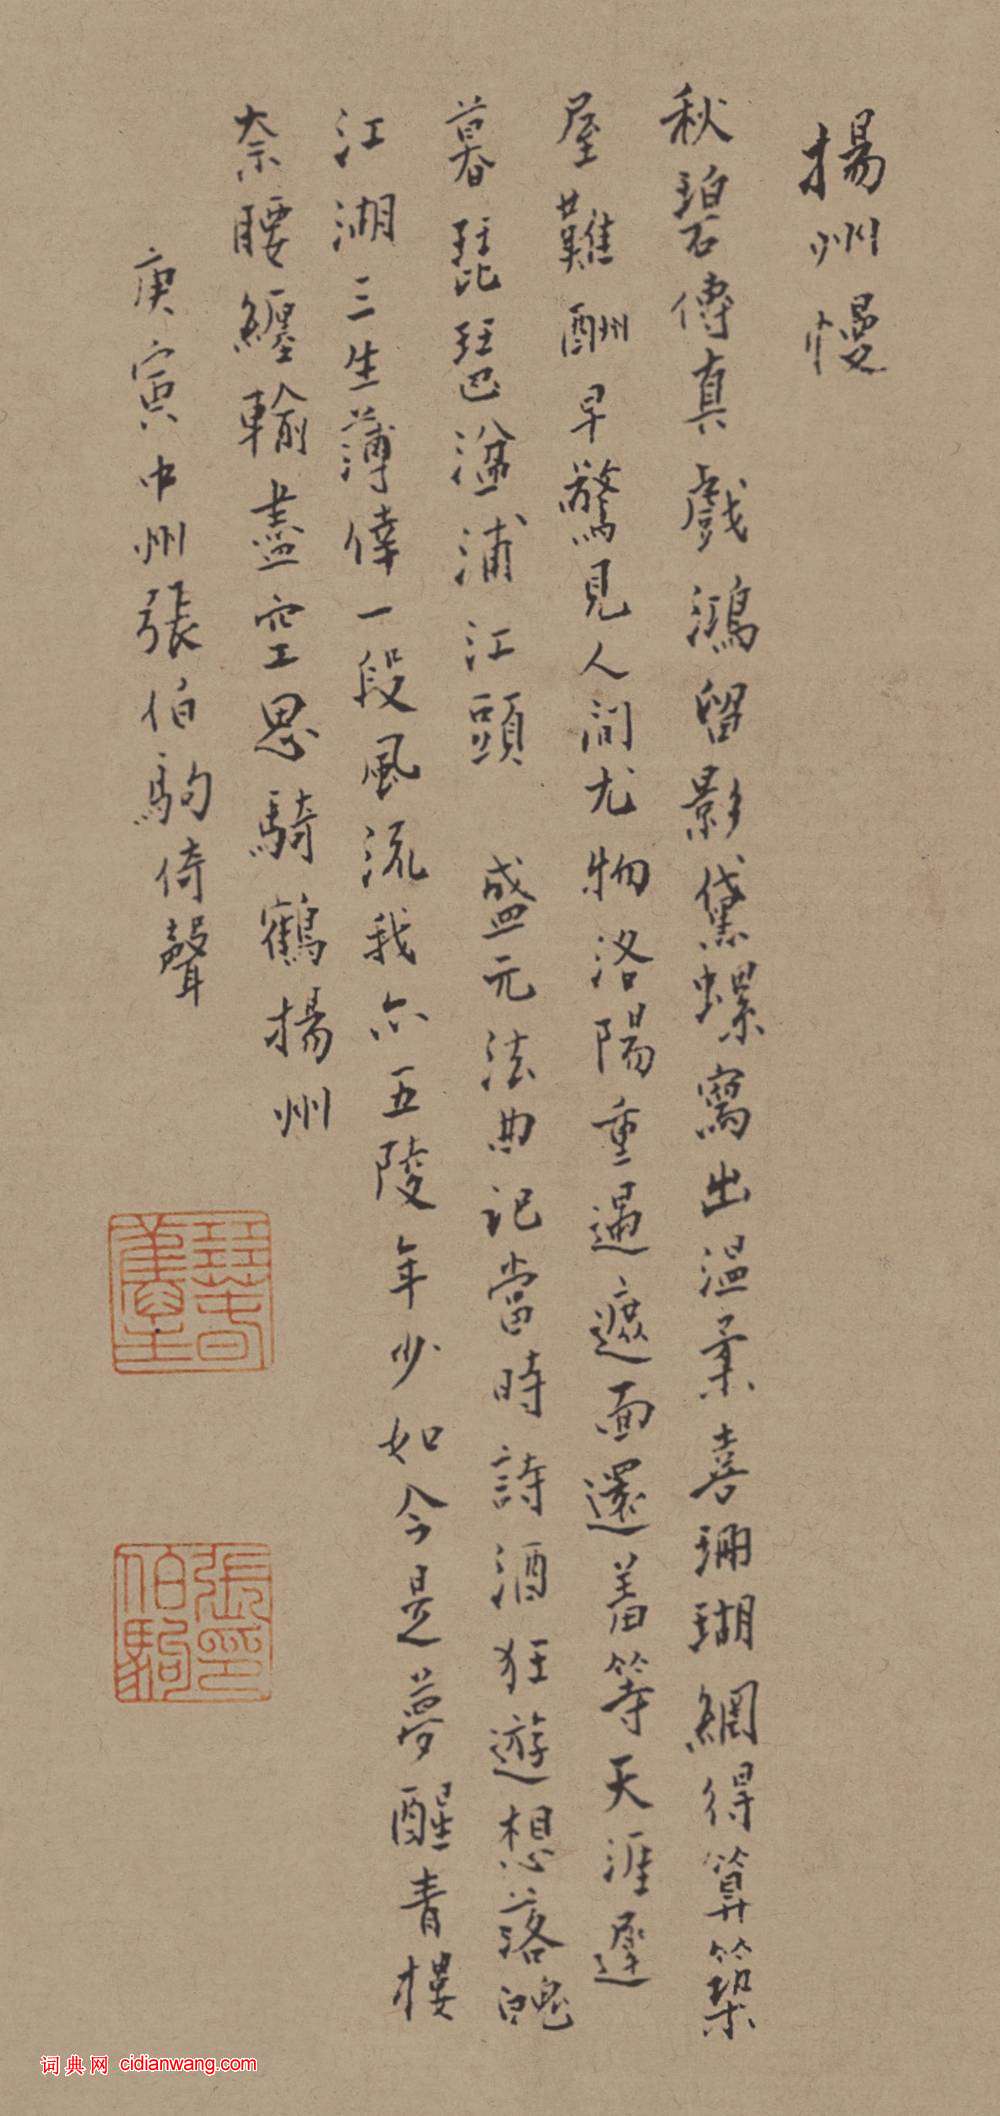 揚州慢
秋碧傳真戲鴻留影黛螺寫出温柔喜珊瑚網得算築
屋難酬早驚見人間尤物洛陽重遇遮面還羞等天涯遲
暮琵琶湓浦江頭 盛元法曲記當時詩酒狂遊想落魄
江湖三生薄倖一段風流我亦五陵年少如今是夢醒青樓
奈腰纏輸盡空思騎鶴揚州
庚寅中州張伯駒倚聲
張伯駒印
词典网 cidianwang.com